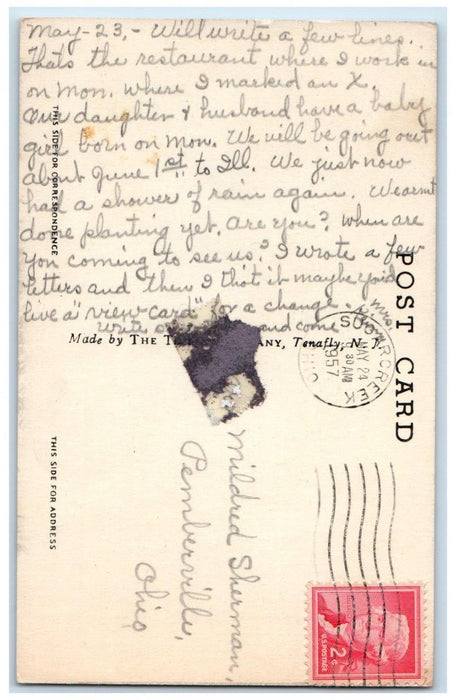 May-23,- Will write a few lines.
Thats the restaurant where I work in
on Mon. where I marked an X.
Our daughter & husband have a baby
girl born on Mon. We will be going out
about June 1st to Ill. We just now
had a shower of rain again. We arnt
done planting yet. are you? when are
you coming to see us? I wrote a few
letters and then I that it maybe you'd
live a "view card" for a change.
Mrs.
Write and come
Made by THE ANY, Tenafly, N. J.
THIS SIDE FOR CORRESPONDENCE
POST CARD
SUGARCREEK
MAY 24
30AM
1957
OHIO
THIS SIDE FOR ADDRESS
Mildred Sherman,
Pemberville,
Ohio
U.S. POSTAGE
2¢